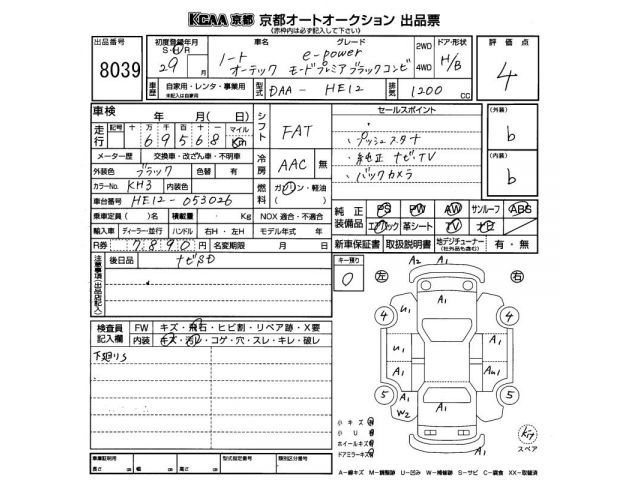 KCAA 京都 京都オートオークション 出品票
(赤枠内は必ず記入して下さい)
出品番号
8039
初度登録年月
S・H・R
29 月
車名
ノート e-power
オーテック モードプレミア ブラックコンビ
グレード
2WD
4WD
ドア・形状
H/B
評価点
4
車歴 自家用・レンタ・事業用
未記入は自家用
型式 DAA - HE12
排気 1200 CC
車検 年 月(日)
走行 記号 十 万 千 百 十 マイル
69568 Km
シフト FAT
セールスポイント
・プッシュスタート
・純正 ナビ・TV
・バックカメラ
(外装)
b
(内装)
b
メーター歴 交換車・改ざん車・不明車
外装色 ブラック 色替 有
冷房 AAC 無
カラーNo. KH3 内装色
燃料 ガソリン・軽油
車台番号 HE12-053026
乗車定員( )名 積載量 Kg
NOX 適合・不適合
純正装備品 PS PW AW サンルーフ ABS
エアバック 革シート TV ナビ
輸入車 ディーラー・並行 ハンドル 右H・左H モデル年式 年
R券 7890 円 名変期限 月 日
新車保証書 取扱説明書 地デジチューナー 有・無
(社外品も含む)
注意事項(出品店記入)
後日品 ナビSD
キー預り
0
左
右
A2 A1
A1
4
4
U1
A1
A1
A1
AU1
5
5
A1
W2
A1
A1
検査員記入欄
FW キズ・飛石・ヒビ割・リペア跡・X要
内装 キズ・汚レ・コゲ・穴・スレ・キレ・破レ
下廻りS
小キズ
小U
ホイールキズ
ドアミラーキズ
スペア
車庫証明用 型式指定番号 類別区分番号
長さ cm 幅 cm 高さ cm
A−線キズ M−調整跡 U−凹み W−補修跡 S−サビ C−腐食 XX−取替済